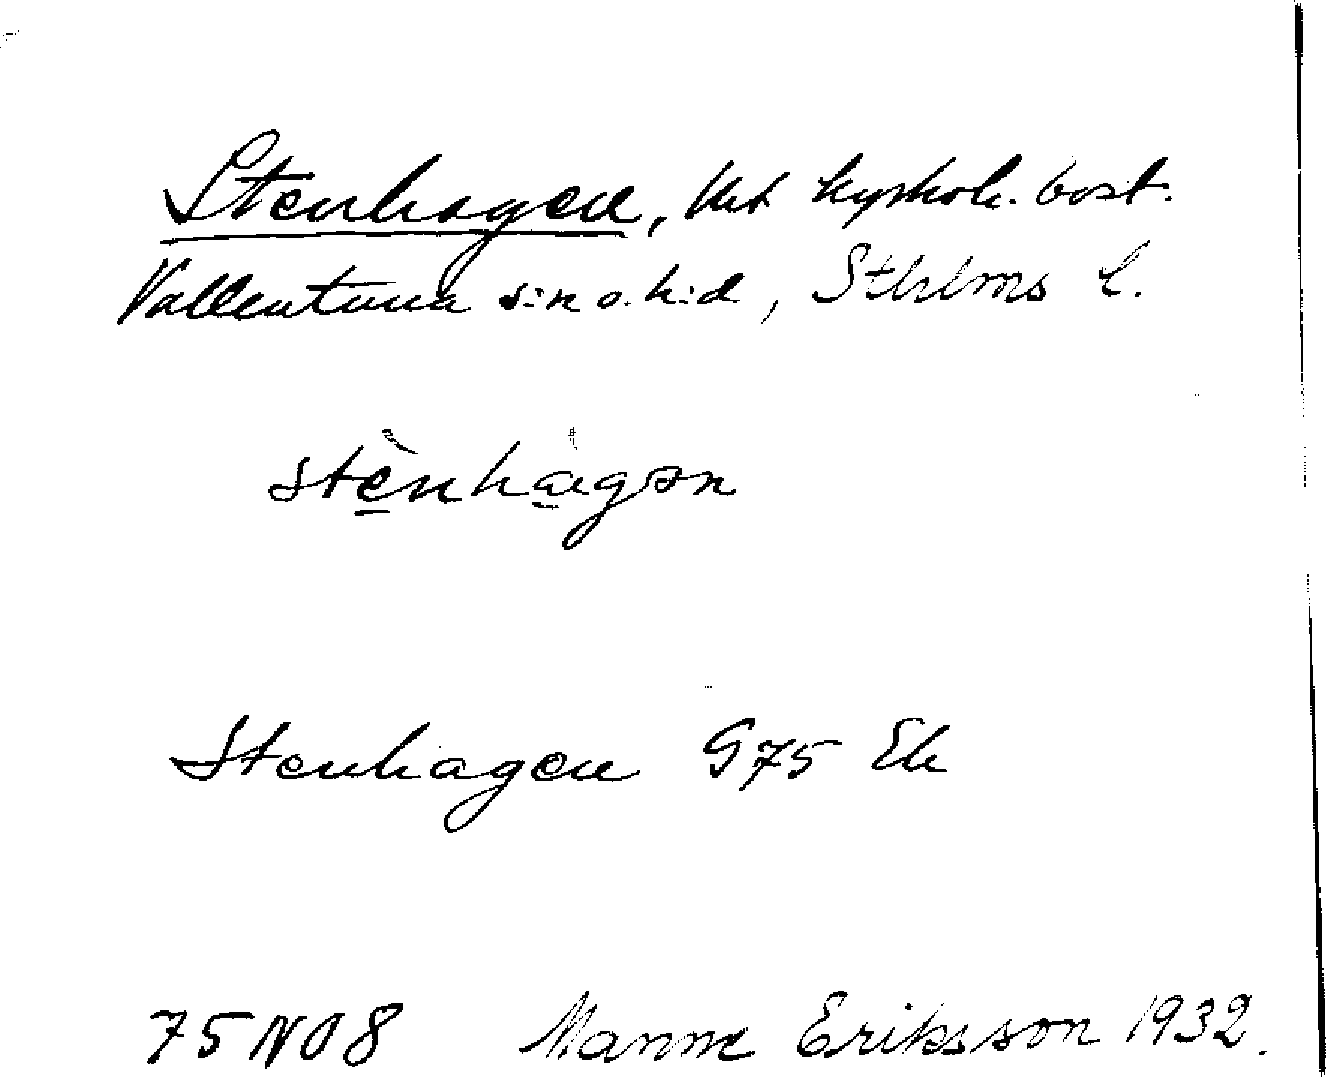 Stenhagen, kyrkoh. bost.
Vallentuna s:n o. h:d, Sthlms l.
stènhàgən
Stenhagen G75 Ek
75 NO 8 Manne Eriksson 1932.